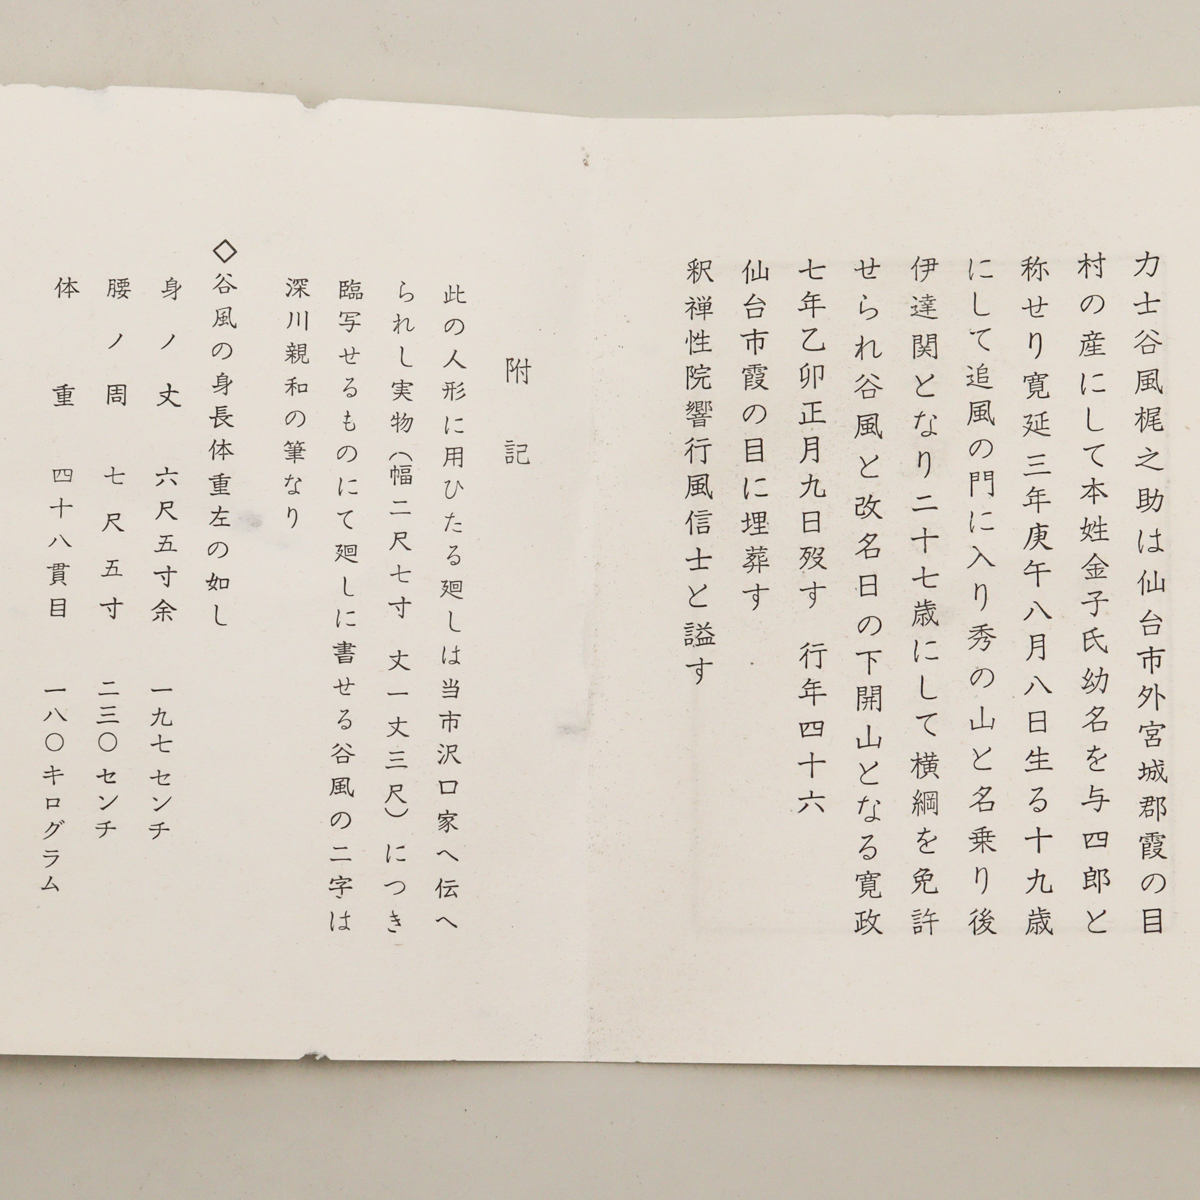 力士谷風梶之助は仙台市外宮城郡霞の目
村の産にして本姓金子氏幼名を与四郎と
称せり寛延三年庚午八月八日生る十九歳
にして追風の門に入り秀の山と名乗り後
伊達関となり二十七歳にして横綱を免許
せられ谷風と改名日の下開山となる寛政
七年乙卯正月九日歿す　行年四十六
仙台市霞の目に埋葬す
釈禅性院響行風信士と謚す
附記
此の人形に用ひたる廻しは当市沢口家へ伝へ
られし実物（幅二尺七寸　丈一丈三尺）につき
臨写せるものにて廻しに書せる谷風の二字は
深川親和の筆なり
◇谷風の身長体重左の如し
身ノ丈　六尺五寸余　一九七センチ
腰ノ周　七尺五寸　二三〇センチ
体重　四十八貫目　一八〇キログラム